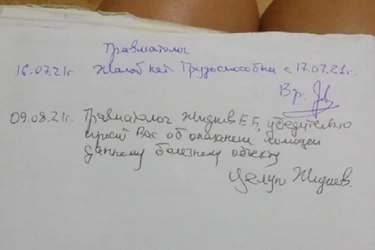 Травматолог
16.07.21г. Жалоб нет. Трудоспособна с 17.07.21г.
Вр.
09.08.21г. Травматолог Жидиев Е.Б, убедительно
просит Вас об оказании помощи
данному болезному объекту
Целую. Жидиев.